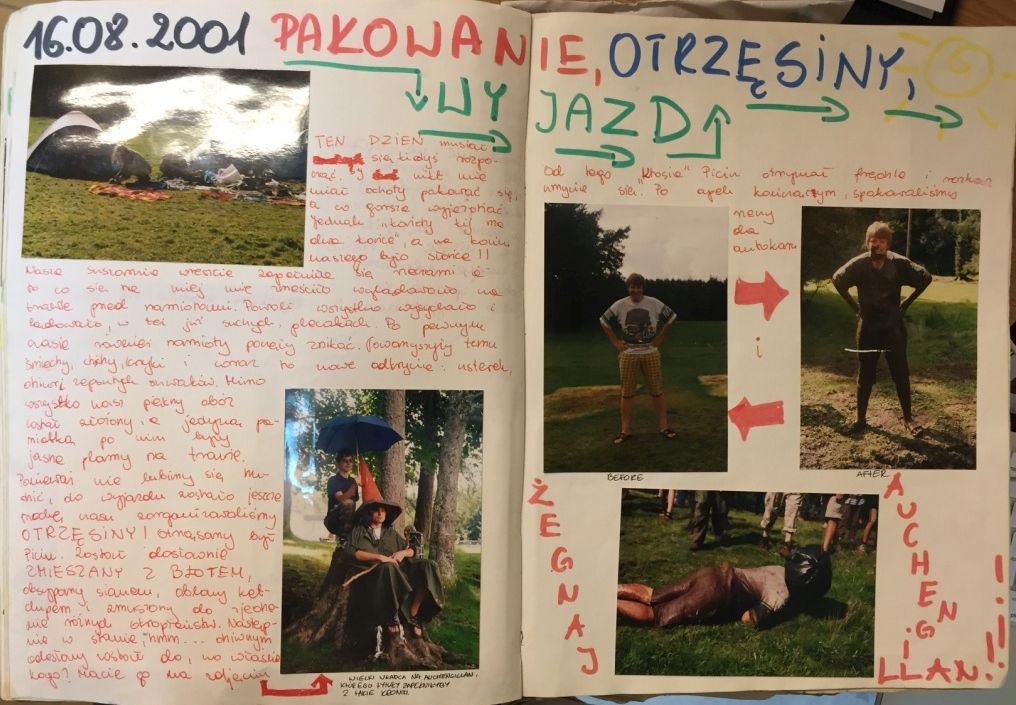 16.08.2001 PAKOWANIE, OTRZĘSINY,
WYJAZD
TEN DZIEŃ musiał
się kiedyś rozpo-
cząć. nikt nie
miał ochoty pakować się,
a co gorsze wyjeżdżać.
Jednak "każdy kij ma
dwa końce", a na końcu
naszego było słońce!!
Nasze suszarnie wreszcie zapełniły się rzeczami a
to co się na niej nie zmieściło wylądowało na
trawie przed namiotami. Powoli wszystko wysychało i
lądowało, w też już suchych, plecakach. Po pewnym
czasie również namioty zaczęły znikać. Towarzyszyły temu
śmiechy, chichy, krzyki i coraz to nowe odkrycie: usterek,
zepsutych suwaków. Mimo
wszystko nasz piękny obóz
został złożony, a jedyną pa-
miątką po nim były
jasne plamy na trawie.
Ponieważ nie lubimy się nu-
dzić, do wyjazdu zostało jeszcze
trochę czasu zorganizowaliśmy
OTRZĘSINY! Otrząsany był
Piciu. Został dosłownie
ZMIESZANY Z BŁOTEM,
obsypany sianem, oblany ket-
chupem i zmuszony do zjedze-
nia różnych okropieństw. Następ-
nie w stanie, hmm... dziwnym
odesłany został do, no właśnie
kogo? Macie go na zdjęciu
WIELKI WŁADCA NA AUCHENGILLAN,
KTÓREGO
Z TAKIE KRONIKI.
Od tego "Ktosia" Piciu otrzymał frędzle i rozkaz
umycia się. Po apelu kończącym, spakowaliśmy
rzeczy
do
autokaru
i
BEFORE
AFTER
ŻEGNAJ
AUCHENGILLAN!!!